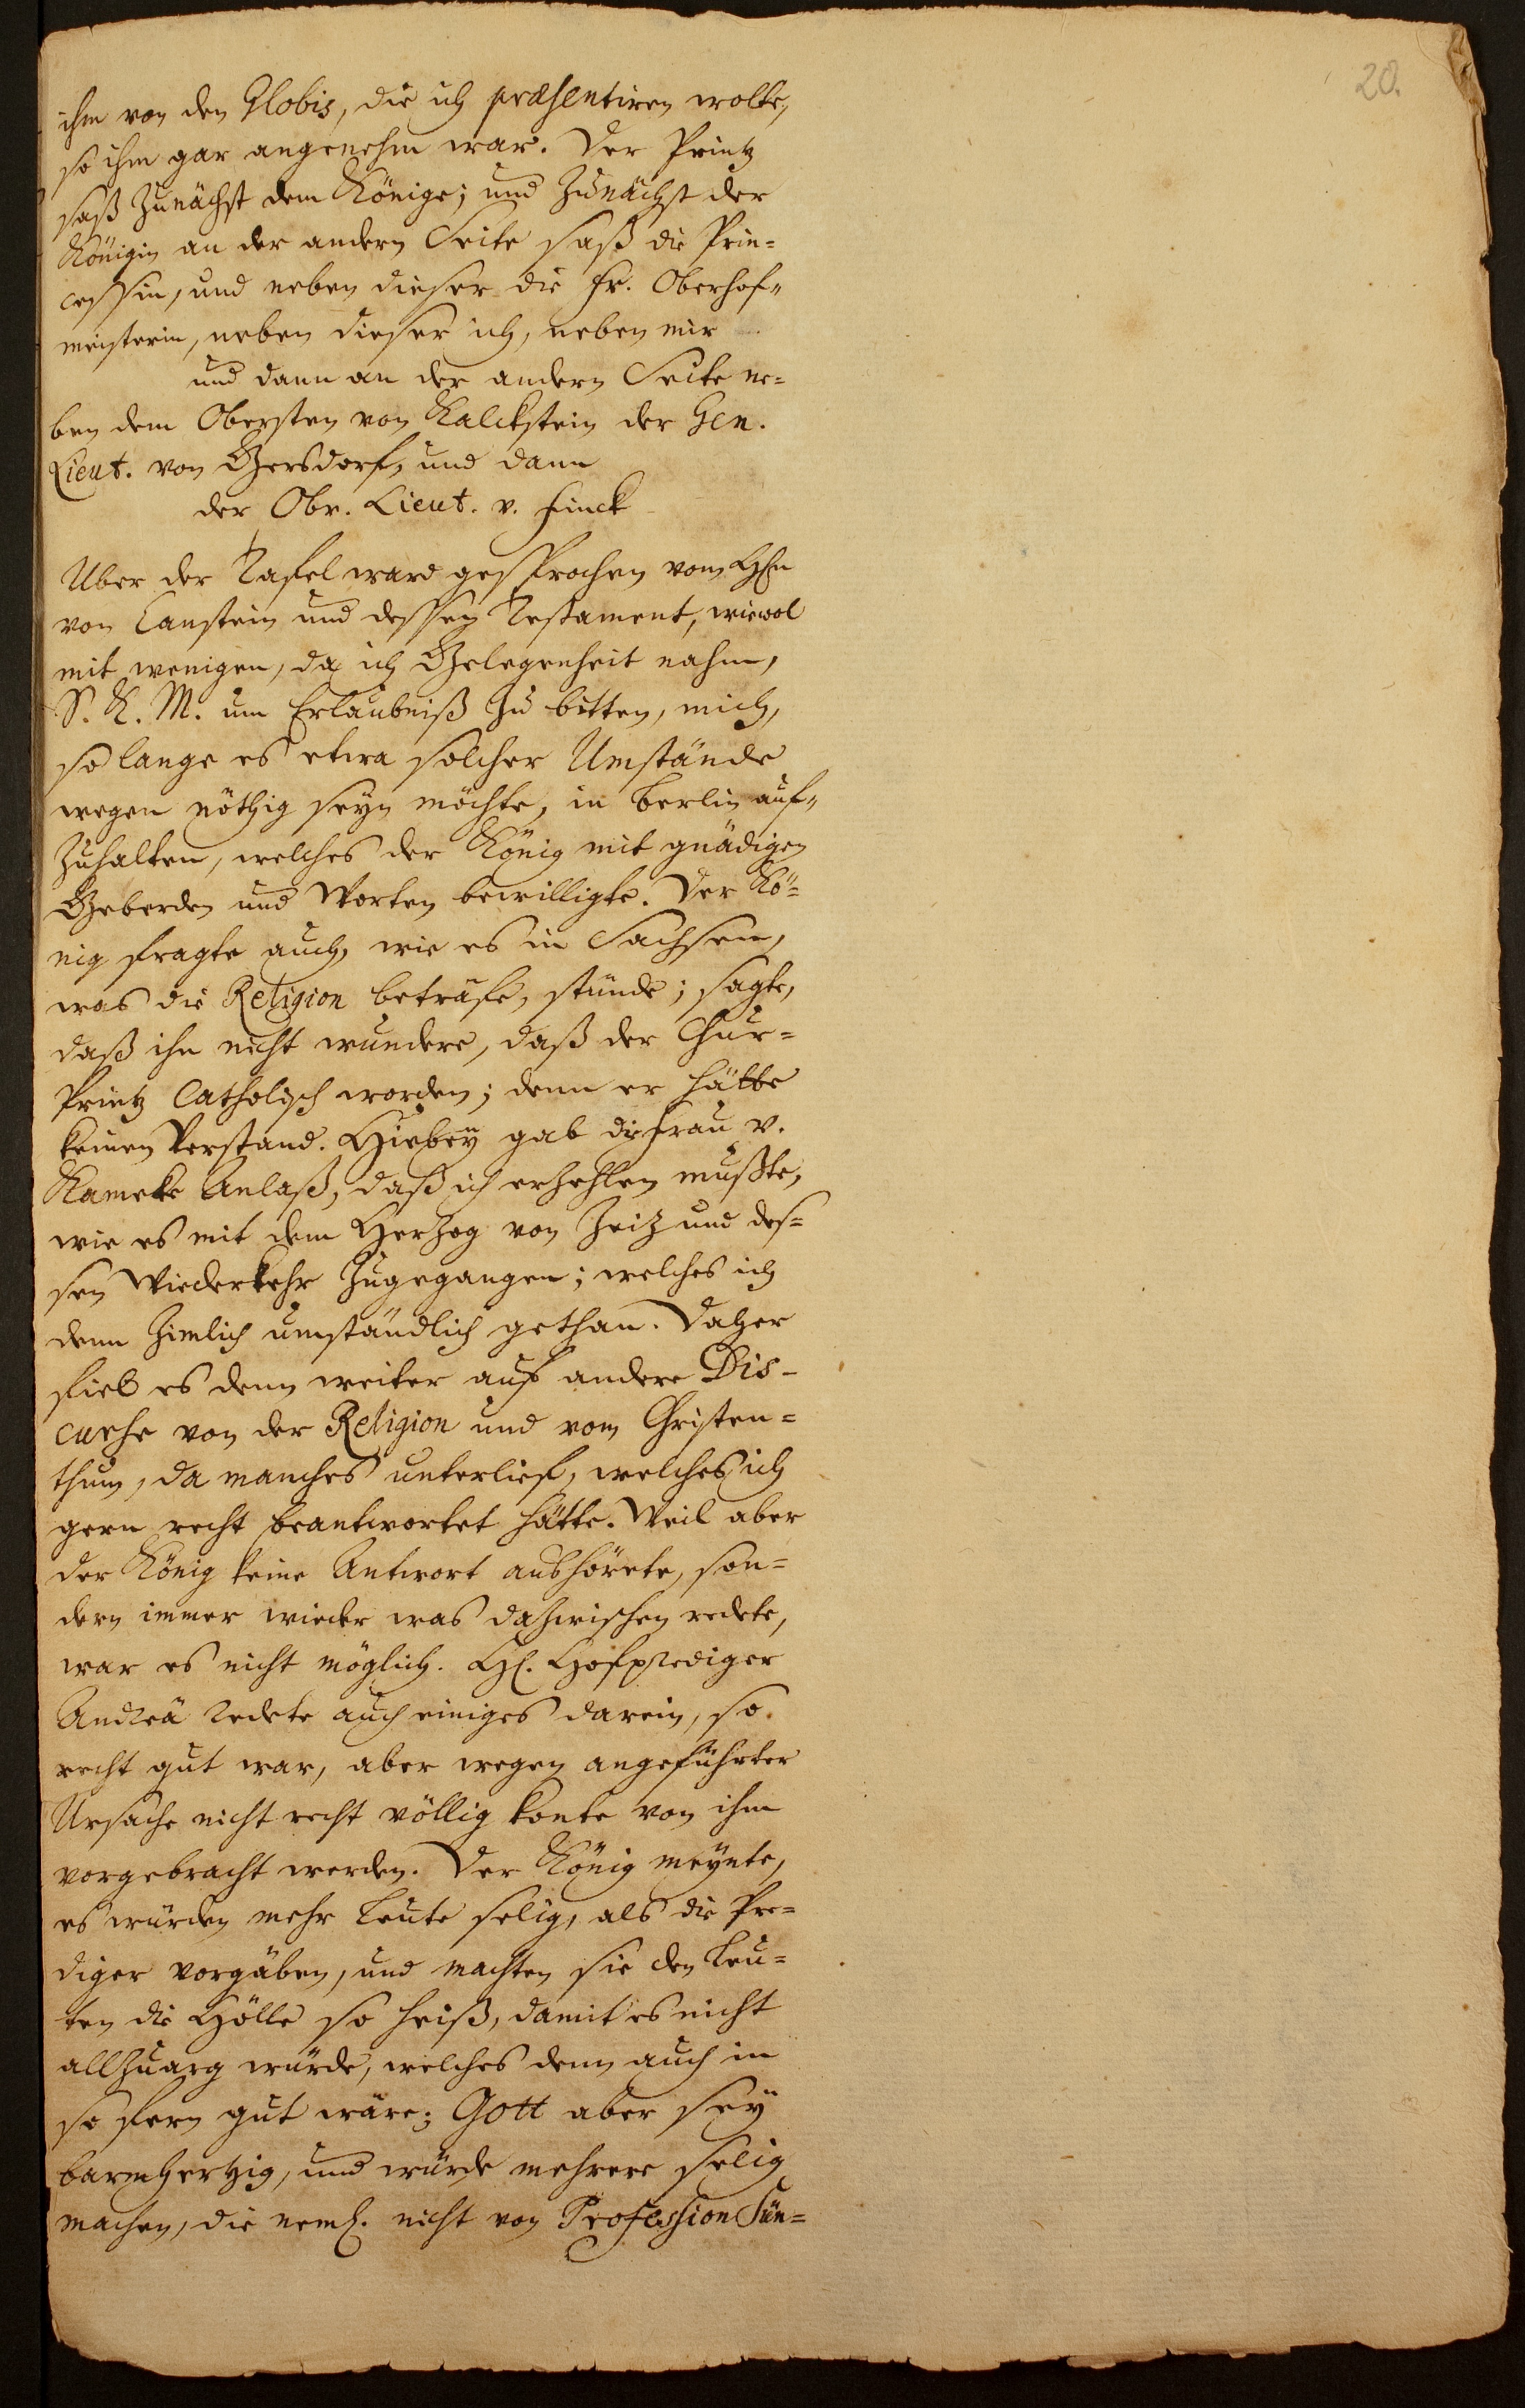 20.
ihm von den Globis, die ich præsentiren wolte,
so ihm gar angenehm war. Der Printz
saß zunächst dem Könige; und zunächst der
Königin an der andern Seite saß die Prin=
cessin, und neben dieser die Fr. Oberhof=
meisterin, neben dieser ich, neben mir
und dann an der andern Seite ne=
ben dem Obersten von Kalckstein der Gen.
Lieut. von Gersdorf, und dann
der Obr. Lieut. v. Finck
Uber der Tafel ward gesprochen vom Hhn
von Canstein und dessen Testament, wiewol
mit wenigen, da ich Gelegenheit nahm,
S. K. M. um Erlaubniß zu bitten, mich,
so lange es etwa solcher Umstände
wegen nöthig seyn möchte, in Berlin auf=
zuhalten, welches der König mit gnädigen
Geberden und Worten bewilligte. Der Kö=
nig fragte auch, wie es in Sachsen,
was die Religion beträfe, stünde; sagte,
daß ihn nicht wundere, daß der Chur=
Printz Catholisch worden; denn er hätte
keinen Verstand. Hiebey gab die Frau v.
Kameke Anlaß, daß ich erzehlen mußte,
wie es mit dem Herzog von Zeiz und des=
sen Wiederkehr zugegangen; welches ich
denn zimlich umständlich gethan. Daher
fiel es denn weiter auf andere Dis-
curse von der Religion und vom Christen=
thum, da manches unterlief, welches ich
gern recht beantwortet hätte. Weil aber
der König keine Antwort aushörete, son=
dern immer wieder was dazwischen redete,
war es nicht möglich. H. Hofprediger
Andreä redete auch einiges darein, so
recht gut war, aber wegen angeführter
Ursache nicht recht völlig konte von ihm
vorgebracht werden. Der König meynte,
es würden mehr Leute selig, als die Pre=
diger vorgäben, und machten sie den Leu=
ten die Hölle so heiß, damit es nicht
allzuarg würde, welches denn auch in
so fern gut wäre; Gott aber sey
barmhertzig, und würde mehrere selig
machen, die neml. nicht von Profession Sün=